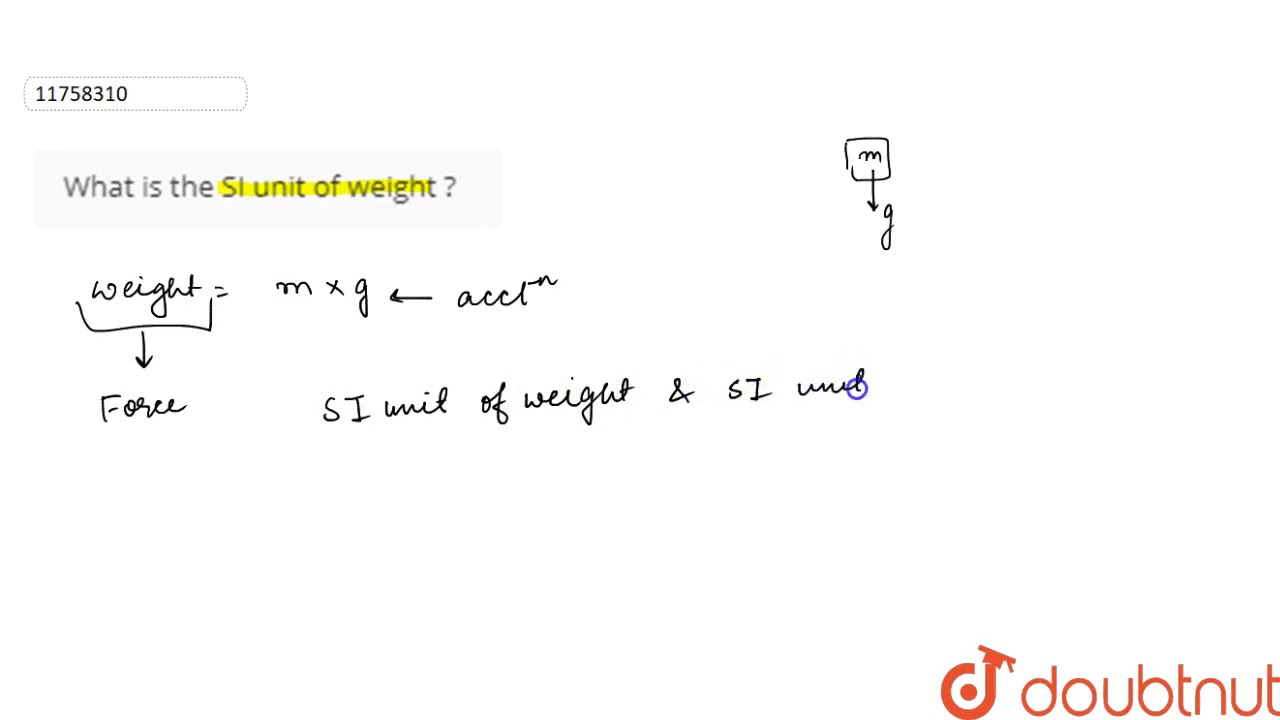 11758310
m
What is the SI unit of weight ?
g
weight = m × g ← accl-n
Force
SI unit of weight & SI unit
doubtnut